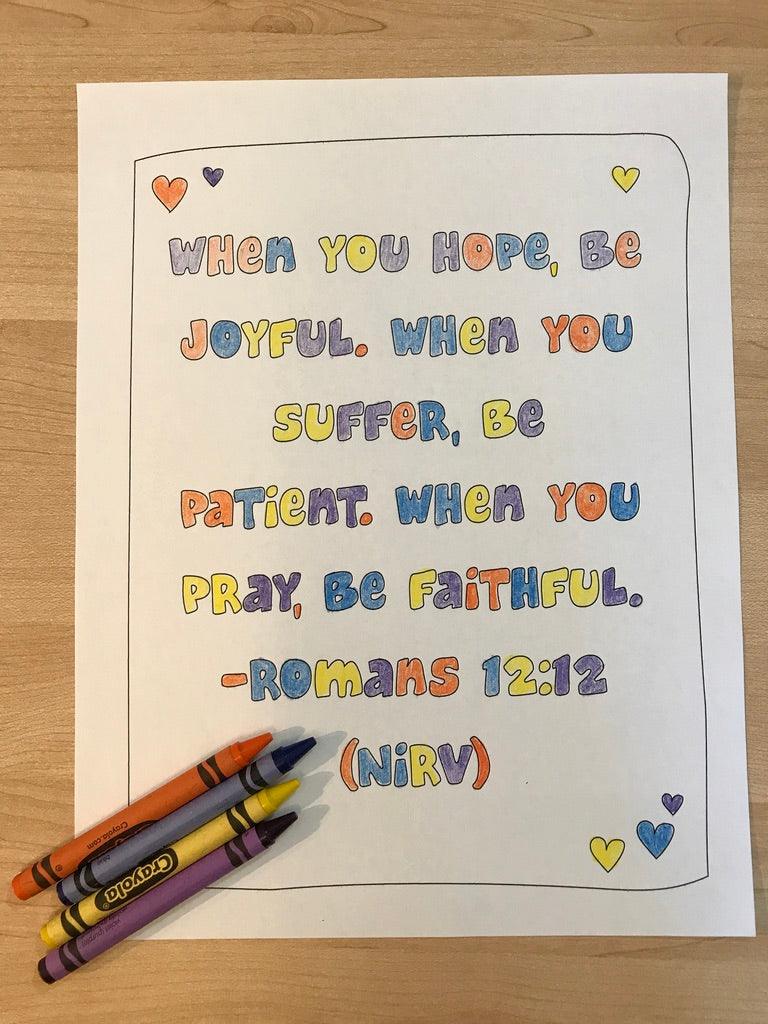 When you Hope, Be
Joyful. When you
suffer, Be
Patient. When you
Pray, Be Faithful.
-Romans 12:12
(NiRV)
Crayola.com
blue
Crayola
violet (purple)